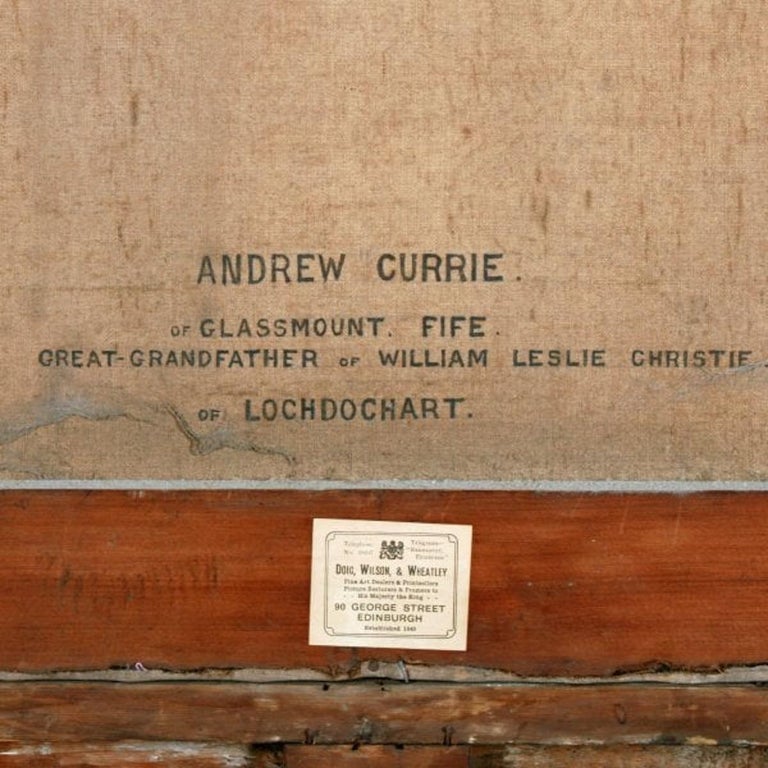 ANDREW CURRIE.
OF GLASSMOUNT. FIFE.
GREAT-GRANDFATHER OF WILLIAM LESLIE CHRISTIE.
OF LOCHDOCHART.
Telephone Telegrams—
No.
DOIG, WILSON, & WHEATLEY
Fine Art Dealers & Printsellers
Picture Restorers & Framers to
- - His Majesty the King - -
90 GEORGE STREET
EDINBURGH
Established 1840